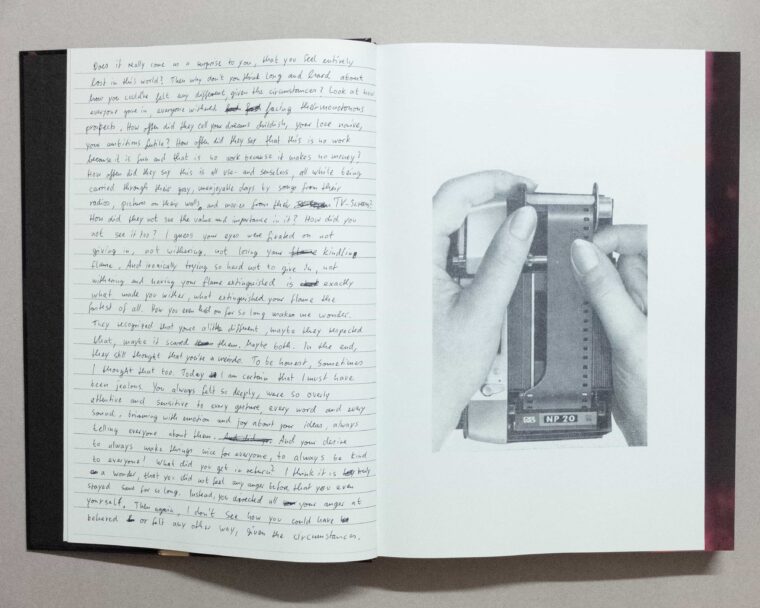 Does it really come as a surprise to you, that you feel entirely
lost in this world? Then why don't you think long and hard about
how you could've felt any different, given the circumstances? Look at how
everyone gave in, everyone withered facing their monotonous
prospects. How often did they call your dreams childish, your love naive,
your ambitions futile? How often did they say that this is no work
because it is fun and that is no work because it makes no money?
How often did they say this is all use- and senseless, all while being
carried through their gray, unenjoyable days by songs from their
radios, pictures on their walls, and movies from their TV-Screen?
How did they not see the value and importance in it? How did you
not see it too? I guess your eyes were fixated on not
giving in, not withering, not losing your kindling
flame. And ironically trying so hard not to give in, not
withering and having your flame extinguished is exactly
what made you wither, what extinguished your flame the
fastest of all. How you even held on for so long makes me wonder.
They recognized that you're a little different, maybe they respected
that, maybe it scared them. Maybe both. In the end,
they still thought that you're a weirdo. To be honest, sometimes
I thought that too. Today I am certain that I must have
been jealous. You always felt so deeply, were so overly
attentive and sensitive to every gesture every word and every
sound, brimming with emotion and joy about your ideas, always
telling everyone about them. And your desire
to always make things nice for everyone, to always be kind
to everyone! What did you get in return? I think it is truly
a wonder, that you did not feel any anger before, that you even
stayed sane for so long. Instead, you directed all your anger at
yourself. Then again, I don't see how you could have
behaved or felt any other way, given the circumstances.
NP 20